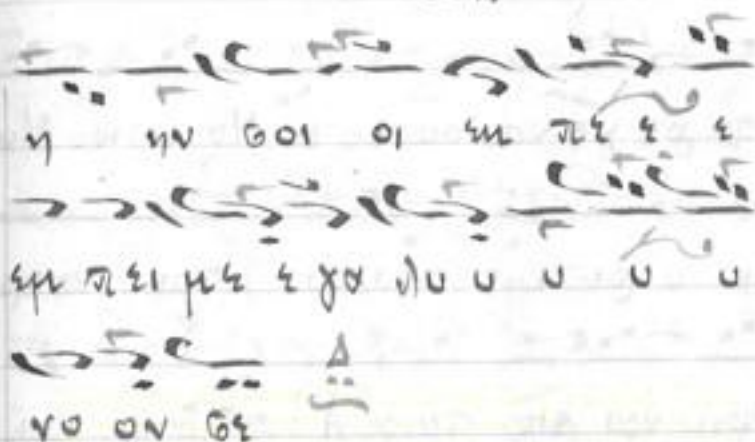 η ην σοι οι εμ πε ε ε
εμ πει με ε γα λυ υ υ υ υ
νο ον σε